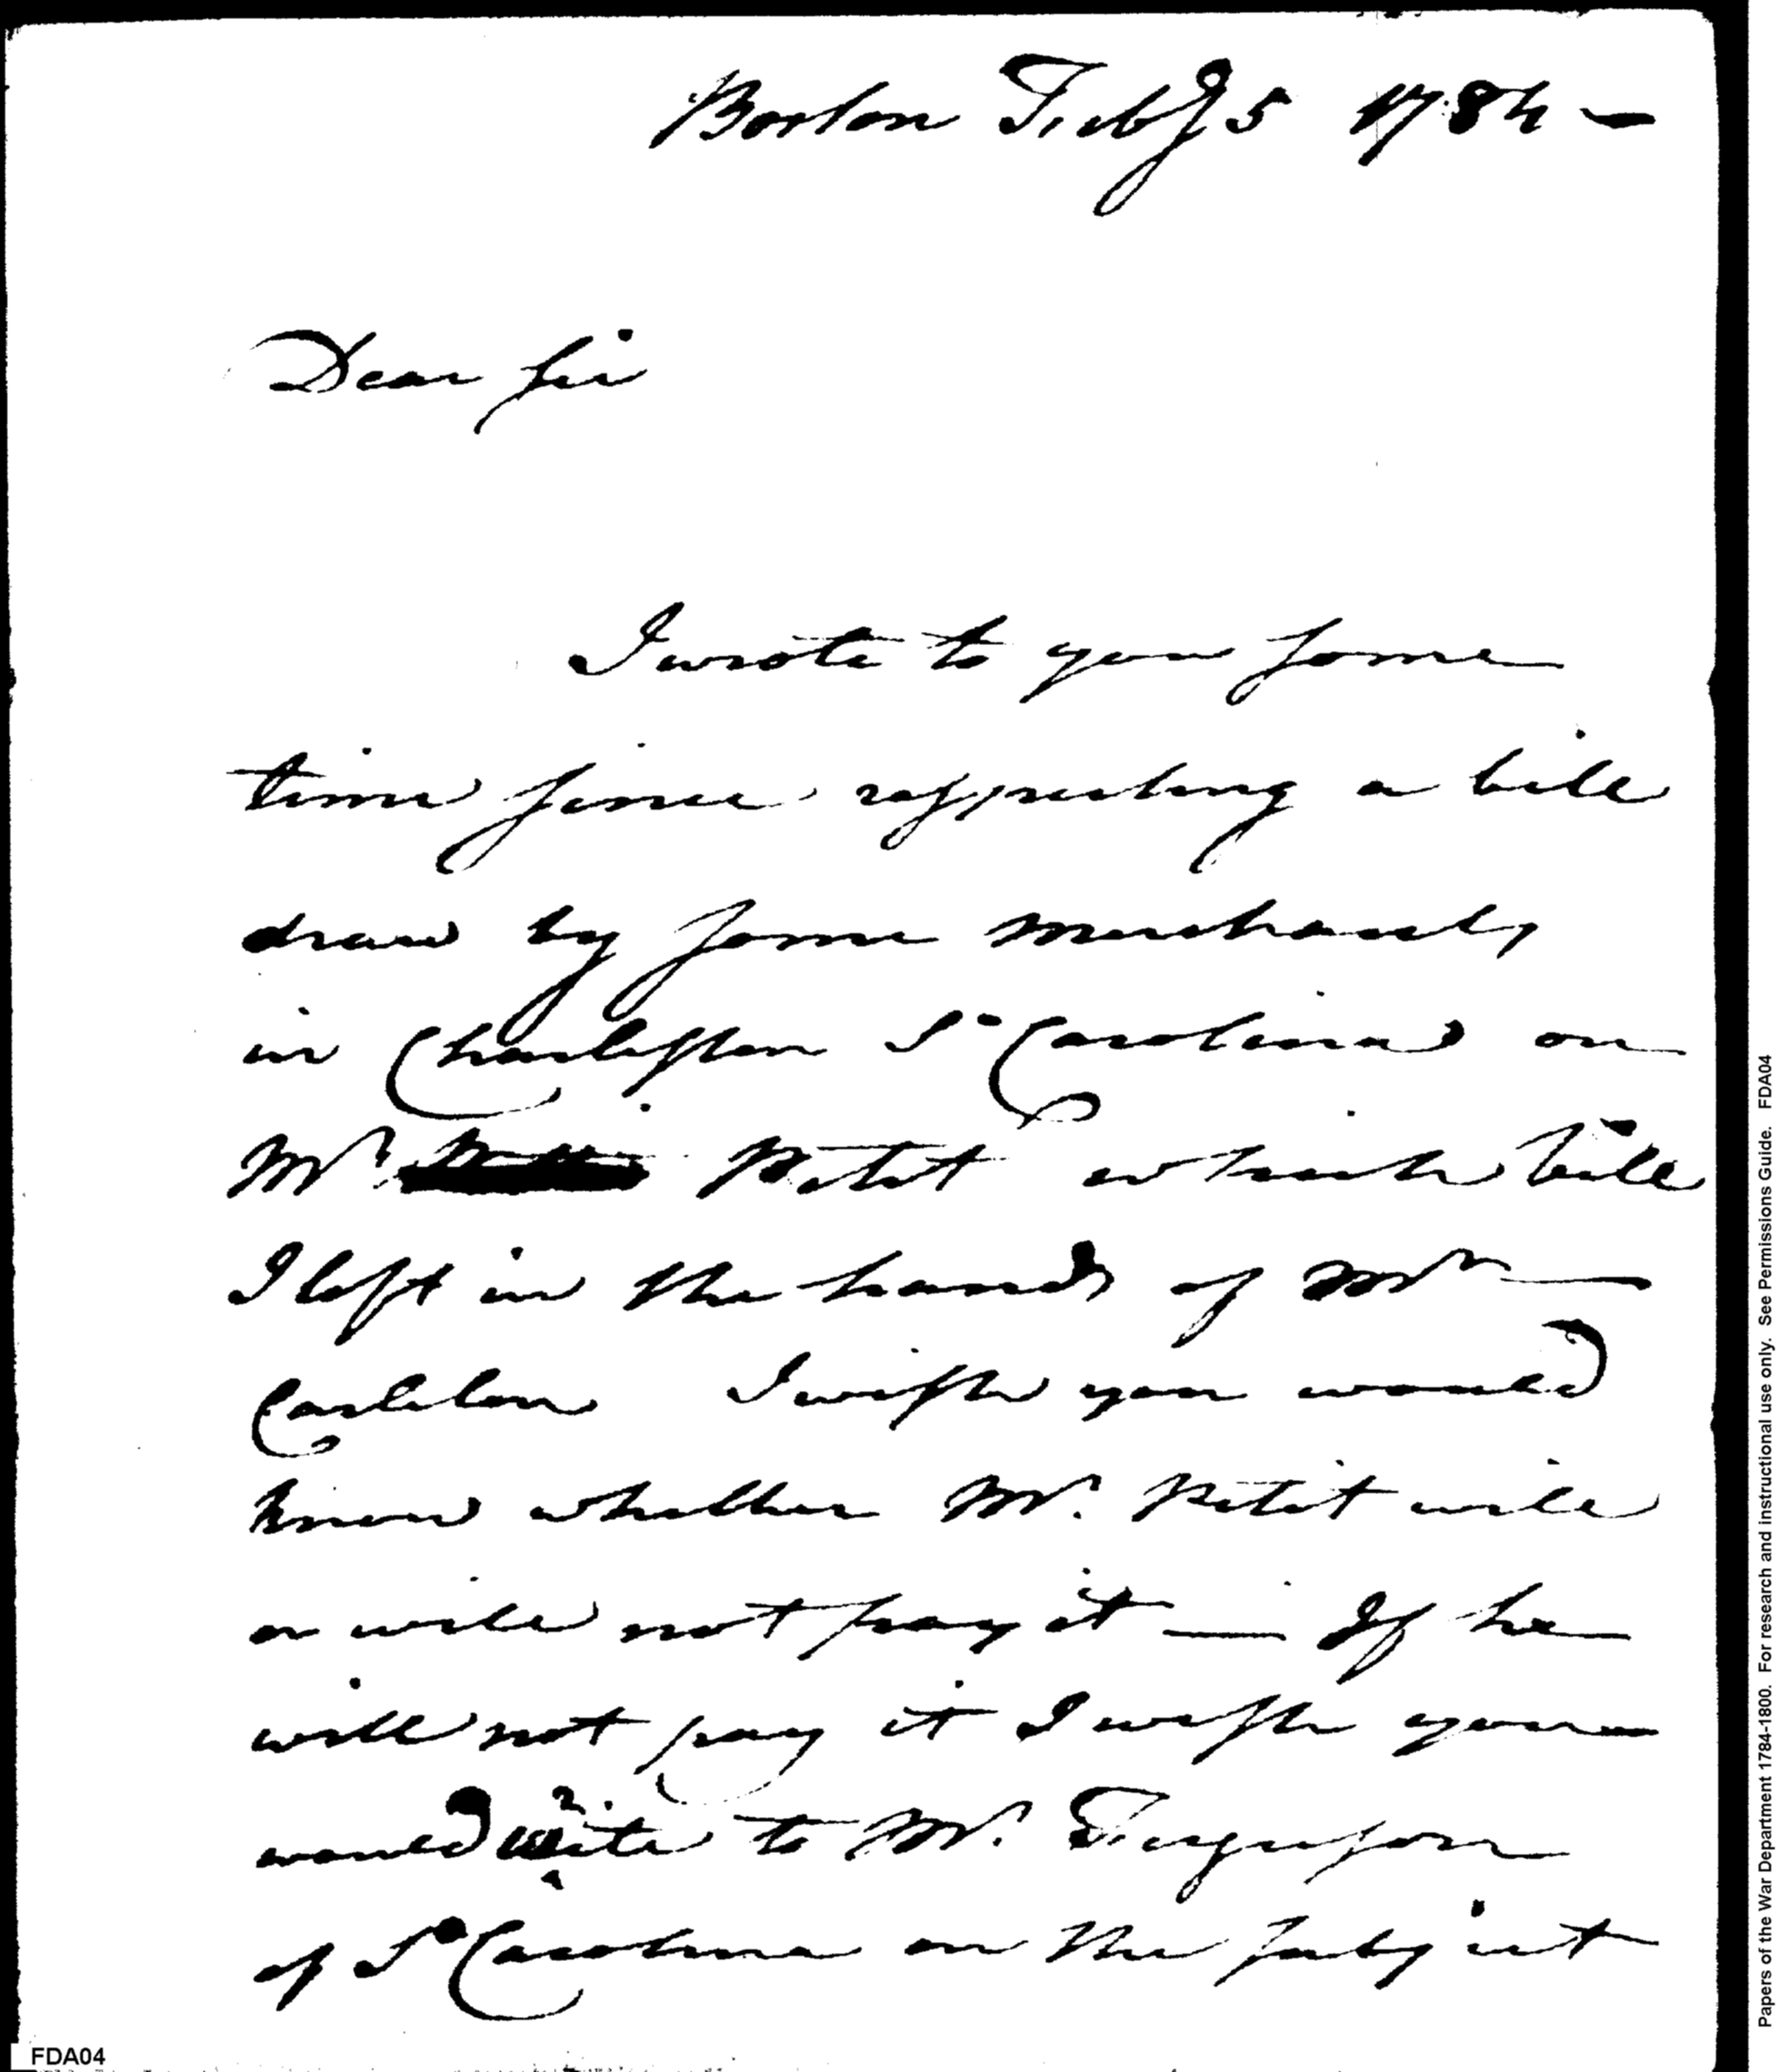 Boston Feby 5 1784 —
Dear Sir
I wrote to you some
time since respecting a bill
draw by some merchants
in Charleston So Carolina on
Mr. Petit which bill
I left in the hands of Mr —
Carleton I wish you would
know whether Mr. Petit will
or will not pay it — If he
will not pay it I wish you
would write to Mr. Ferguson
of So Carolina on the subject
FDA04
Papers of the War Department 1784-1800. For research and instructional use only. See Permissions Guide. FDA04